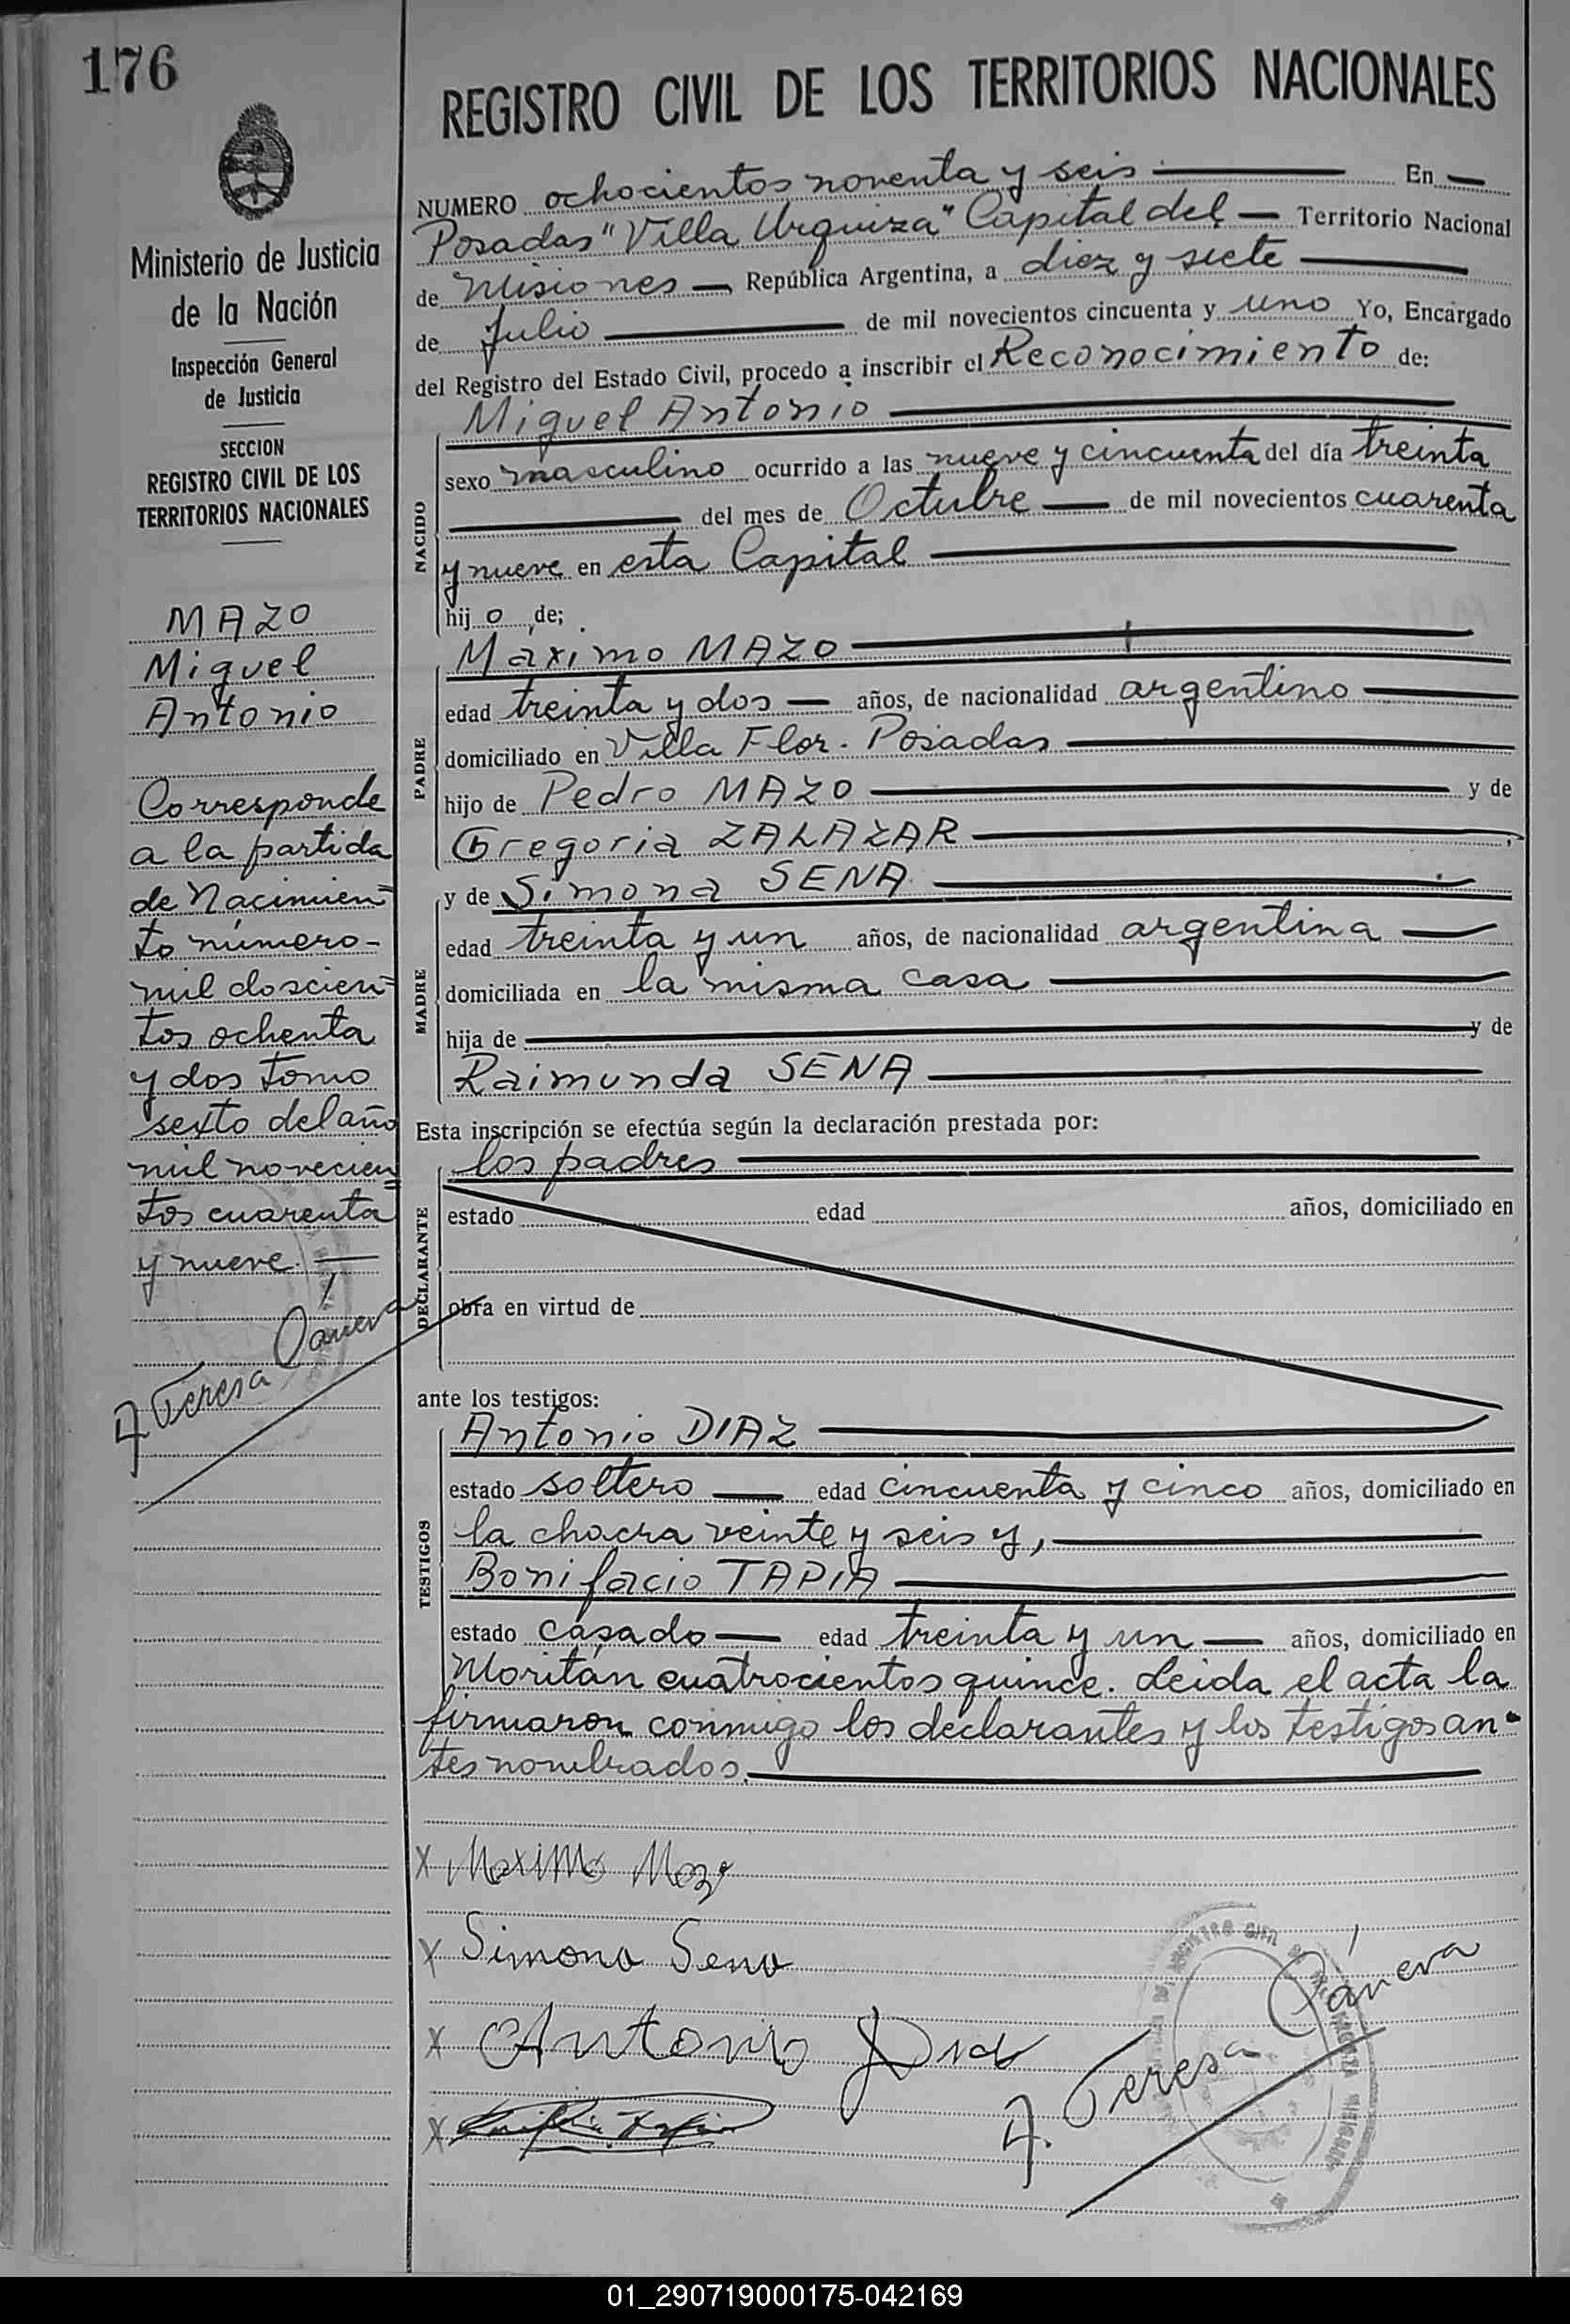 176
Ministerio de Justicia
de la Nación
Inspección General
de Justicia
SECCION
REGISTRO CIVIL DE LOS
TERRITORIOS NACIONALES
MAZO
Miguel
Antonio
Corresponde
a la partida
de Nacimien=
to número-
mil doscien=
tos ochenta
y dos tomo
sexto del año
mil novecien=
tos cuarenta
y nueve.
A Teresa
REGISTRO CIVIL DE LOS TERRITORIOS NACIONALES
NUMERO ochocientos noventa y seis En
Posadas "Villa Urquiza" Capital del Territorio Nacional
de Misiones República Argentina, a diez y siete
de Julio de mil novecientos cincuenta y uno Yo, Encargado
del Registro del Estado Civil, procedo a inscribir el Reconocimiento de:
Miguel Antonio
NACIDO
sexo masculino ocurrido a las nueve y cincuenta del día treinta
del mes de Octubre de mil novecientos cuarenta
y nueve en esta Capital
hijo de;
PADRE
Máximo MAZO
edad treinta y dos años, de nacionalidad argentino
domiciliado en Villa Flor. Posadas
hijo de Pedro MAZO y de
Gregoria ZALAZAR
MADRE
y de Simona SENA
edad treinta y un años, de nacionalidad argentina
domiciliada en la misma casa
hija de y de
Raimunda SENA
Esta inscripción se efectúa según la declaración prestada por:
DECLARANTE
los padres
estado edad años, domiciliado en
obra en virtud de
ante los testigos:
TESTIGOS
Antonio DIAZ
estado soltero edad cincuenta y cinco años, domiciliado en
la chacra veinte y seis y,
Bonifacio TAPIA
estado casado edad treinta y un años, domiciliado en
Moritán cuatrocientos quince. Leida el acta la
firmaron conmigo los declarantes y los testigos an-
tes nombrados.
X Maximo Mazo
X Simona Sena
X Antonio Dias
X
A. Teresa
01_290719000175-042169